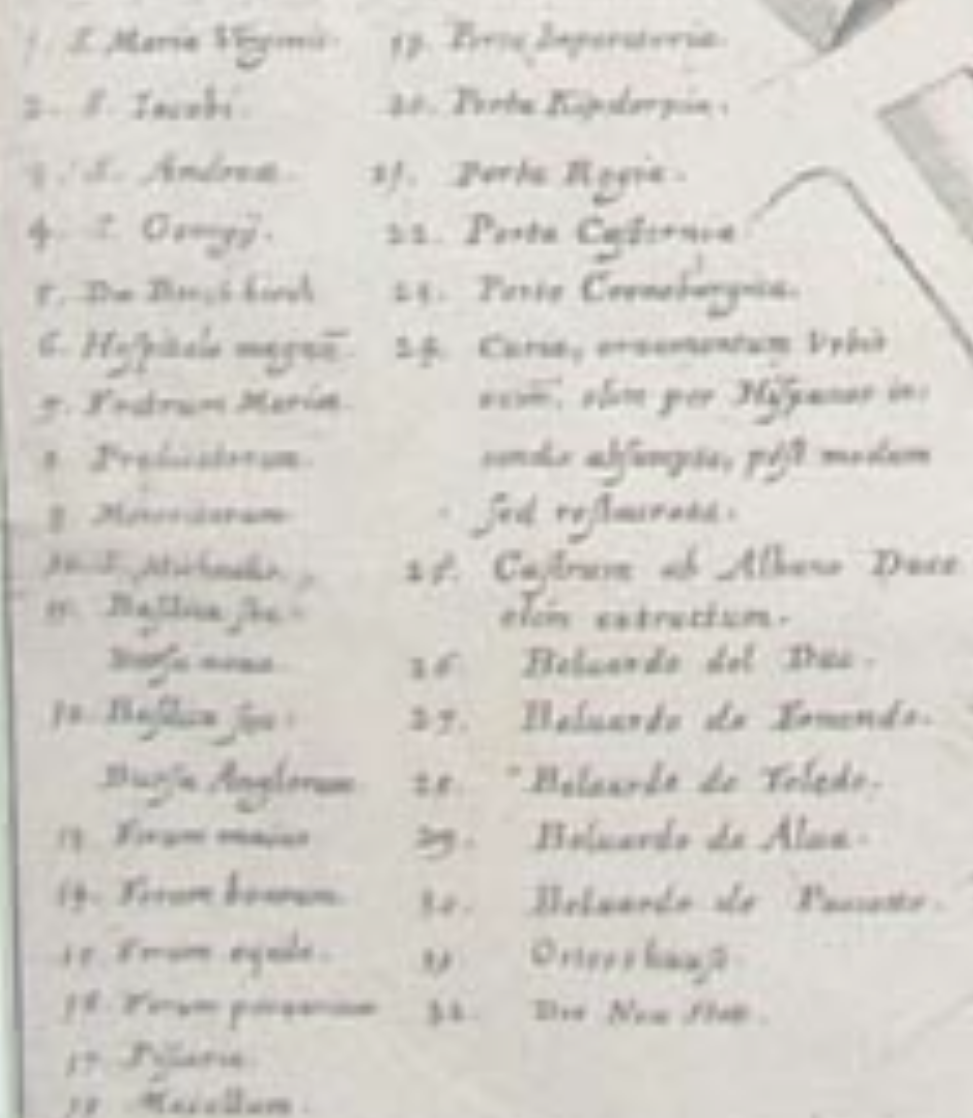 1. S. Maria Virginis.
2. S. Iacobi.
3. S. Andreæ.
4. S. Georgÿ.
5. Die
6. Hospitale magnū.
7. Fratrum Mariæ.
8. Prædicatorum.
9. Minoritarum
10. S. Michaelis.
11. Basilica seu
Bursa noua
12. Basilica seu
Bursa Anglorum
13. Forum maius
14. Forum boarum.
15. Forum
16. Forum
17. Pissaria.
18. Macellum.
19. Porta Imperatoria.
20. Porta Kipdorpia.
21. Porta Regia.
22. Porta Cæsarea
23. Porta Croneburgia.
24. Curia, ornamentum Urbis
olim per Hispanos in:
cendio absumpta, post modum
sed restaurata.
25. Castrum ab Albano Duce
olim extructum.
26. Beluardo del Duc.
27. Beluardo de Ernando.
28. Beluardo de Toledo.
29. Beluardo de Alua.
30. Beluardo de Paciotto.
31. Osters hauß
32. Die Neu Statt.